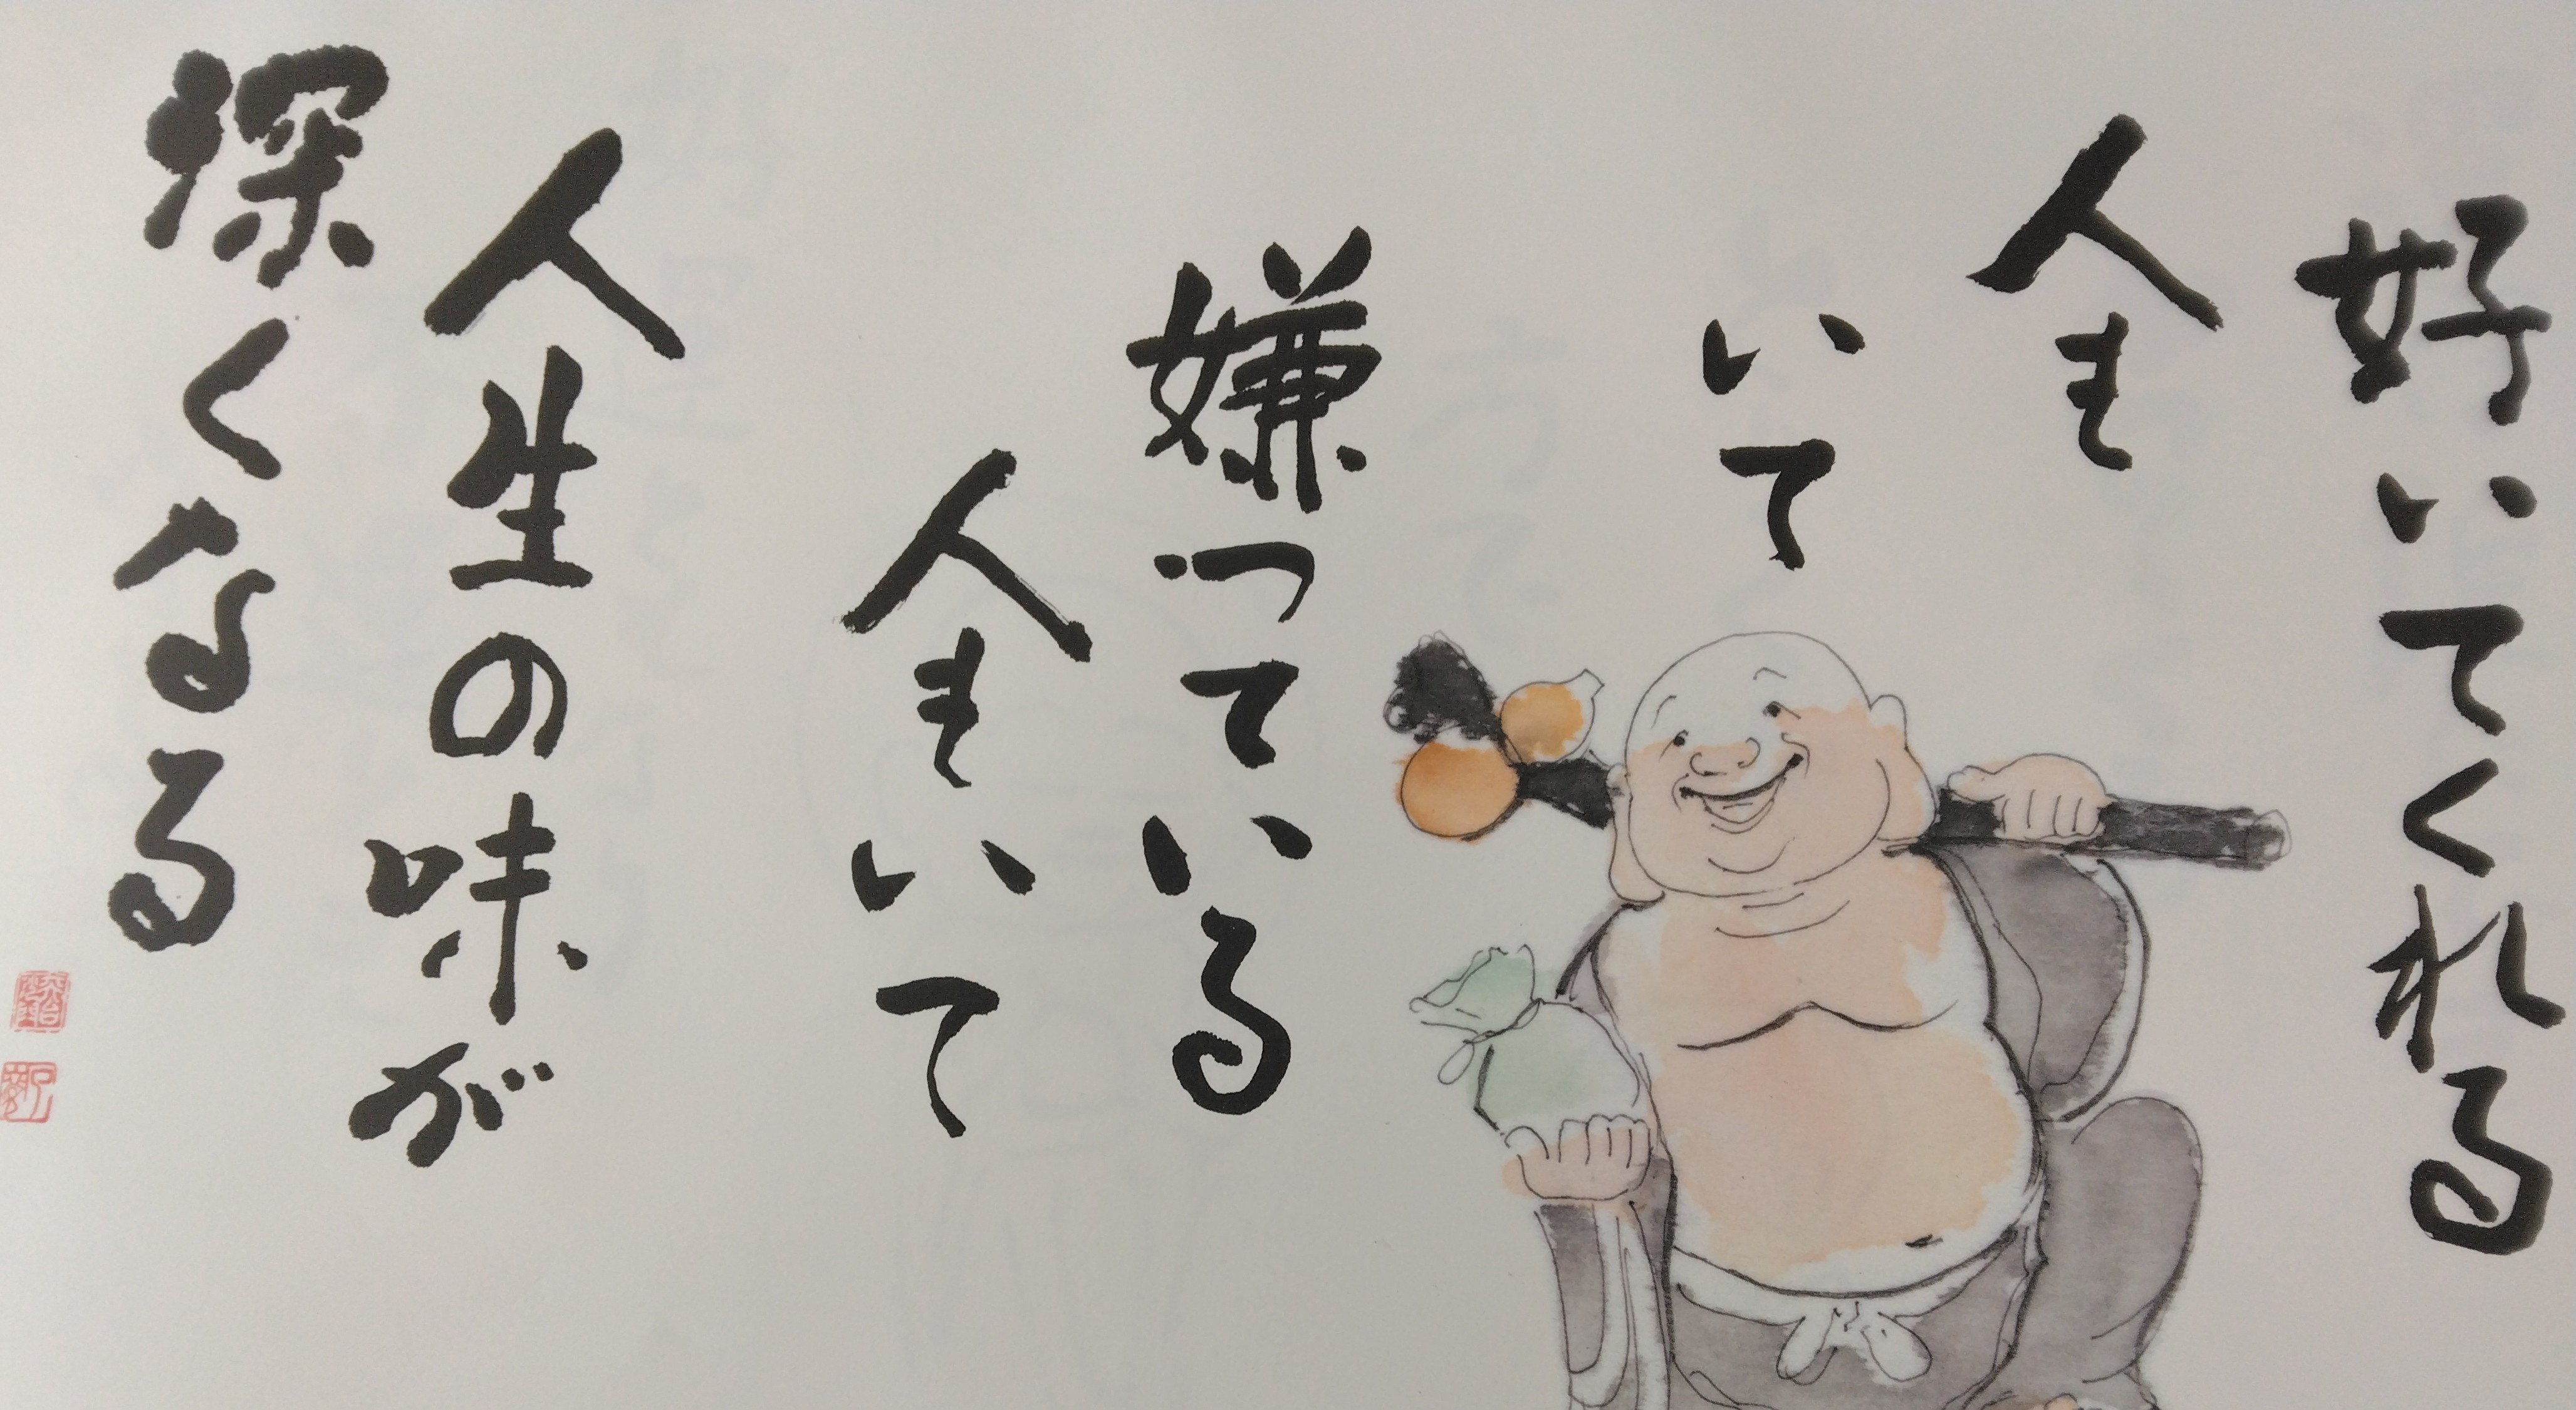 好いてくれる
人も
いて
嫌っている
人もいて
人生の味が
深くなる